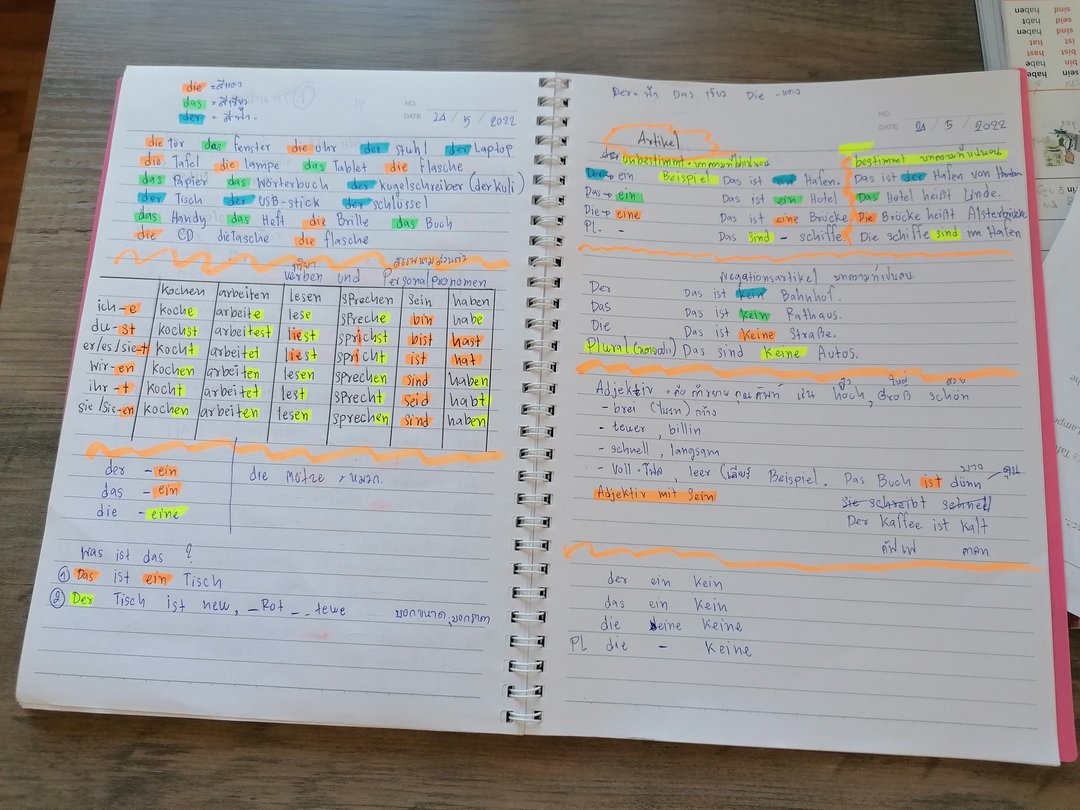 die = สีแดง
das = สีเขียว
der = สีฟ้า
NO.
DATE 24 / 5 / 2022
die Tür das Fenster die Uhr der Stuhl der Laptop
die Tafel die Lampe das Tablet die Flasche
das Papier das Wörterbuch der Kugelschreiber (der Kuli)
der Tisch der USB-stick der Schlüssel
das Handy das Heft die Brille das Buch
die CD die Tasche die flasche
กริยา สรรพนามส่วนตัว
Verben und Personalpronomen
kochen arbeiten lesen sprechen sein haben
ich-e koche arbeite lese spreche bin habe
du-st kochst arbeitest liest sprichst bist hast
er/es/sie-t kocht arbeitet liest spricht ist hat
wir-en kochen arbeiten lesen sprechen sind haben
ihr-t kocht arbeitet lest sprecht seid habt
sie/Sie-en kochen arbeiten lesen sprechen sind haben
der - ein
das - ein
die - eine
die Mütze = หมวก
Was ist das ?
① Das ist ein Tisch
② Der Tisch ist neu, _ Rot _ _ tewe บอกขนาด, บอกราคา
Der = ฟ้า Das เขียว Die - แดง
NO.
DATE 24 / 5 / 2022
Artikel
unbestimmt
bestimmt
Der → ein Beispiel Das ist ein Hafen. Das ist der Hafen von
Das → ein Das ist ein Hotel Das Hotel heißt Linde.
Die → eine Das ist eine Brücke Die Brücke heißt Alsterbrücke
PL. - - Das sind - schiffe Die schiffe sind im Hafen
Negationsartikel
Der Das ist kein Bahnhof.
Das Das ist kein Rathaus.
Die Das ist keine Straße.
Plural Das sind keine Autos.
Adjektiv hoch, Groß schön
- brei
- teuer, billin
- schnell, langsam
- Voll leer Beispiel. Das Buch ist dünn
Adjektiv mit Sein
Sie schreibt schnell
Der Kaffee ist kalt
der ein Kein
das ein Kein
die eine Keine
PL die - Keine
haben
sind
seid
haben
sind
habt
hat
ist
hast
bist